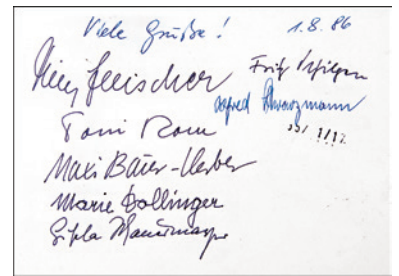 Viele Grüße! 1.8.86
fleischer Fritz Schilgen
Alfred Schwarzmann
Toni
Maxi Baier-Herber
Marie Dollinger
Gisela Mauermayer